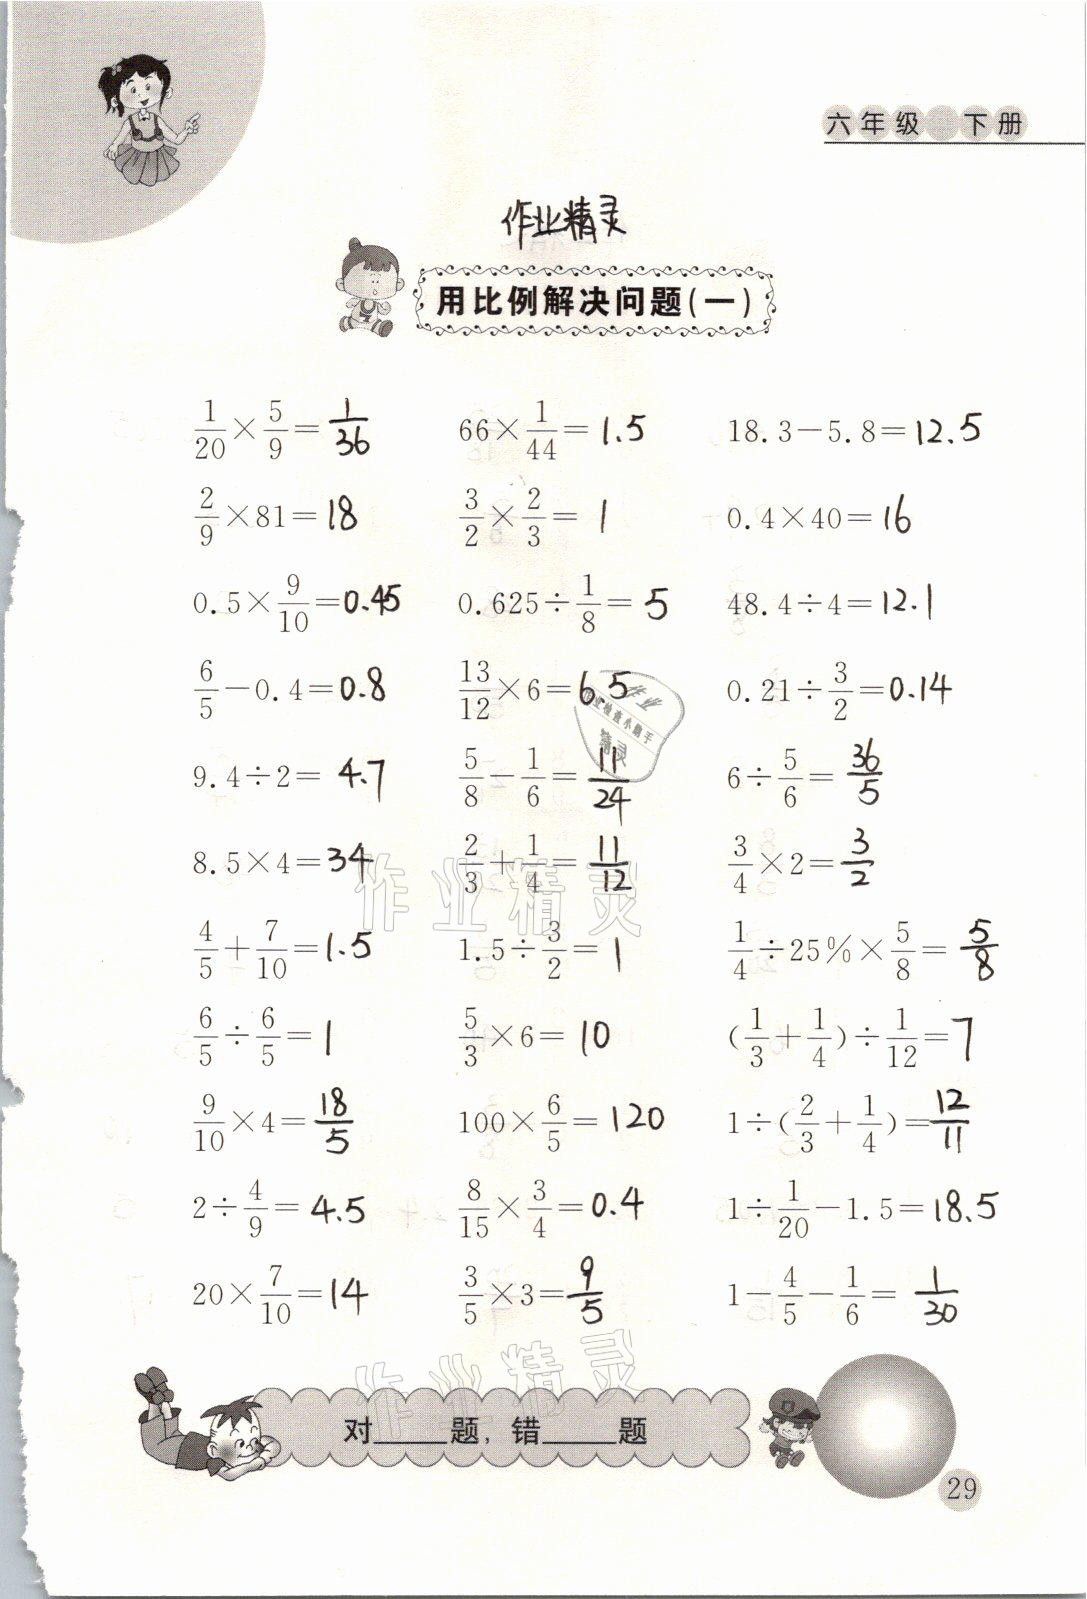 六年级 下册
作业精灵
用比例解决问题(一)
1/20 × 5/9 = 1/36 66 × 1/44 = 1.5 18.3-5.8=12.5
2/9 × 81 = 18 3/2 × 2/3 = 1 0.4×40=16
0.5 × 9/10 = 0.45 0.625 ÷ 1/8 = 5 48.4÷4=12.1
6/5 - 0.4 = 0.8 13/12 × 6 = 6.5 0.21 ÷ 3/2 = 0.14
9.4÷2= 4.7 5/8 - 1/6 = 11/24 6 ÷ 5/6 = 36/5
8.5×4=34 2/3 + 1/4 = 11/12 3/4 × 2 = 3/2
4/5 + 7/10 = 1.5 1.5 ÷ 3/2 = 1 1/4 ÷ 25% × 5/8 = 5/8
6/5 ÷ 6/5 = 1 5/3 × 6 = 10 (1/3 + 1/4) ÷ 1/12 = 7
9/10 × 4 = 18/5 100 × 6/5 = 120 1 ÷ (2/3 + 1/4) = 12/11
2 ÷ 4/9 = 4.5 8/15 × 3/4 = 0.4 1 ÷ 1/20 - 1.5 = 18.5
20 × 7/10 = 14 3/5 × 3 = 9/5 1 - 4/5 - 1/6 = 1/30
作业
作业检查小助手
精灵
作业精灵
作业精灵
对____题,错____题
29